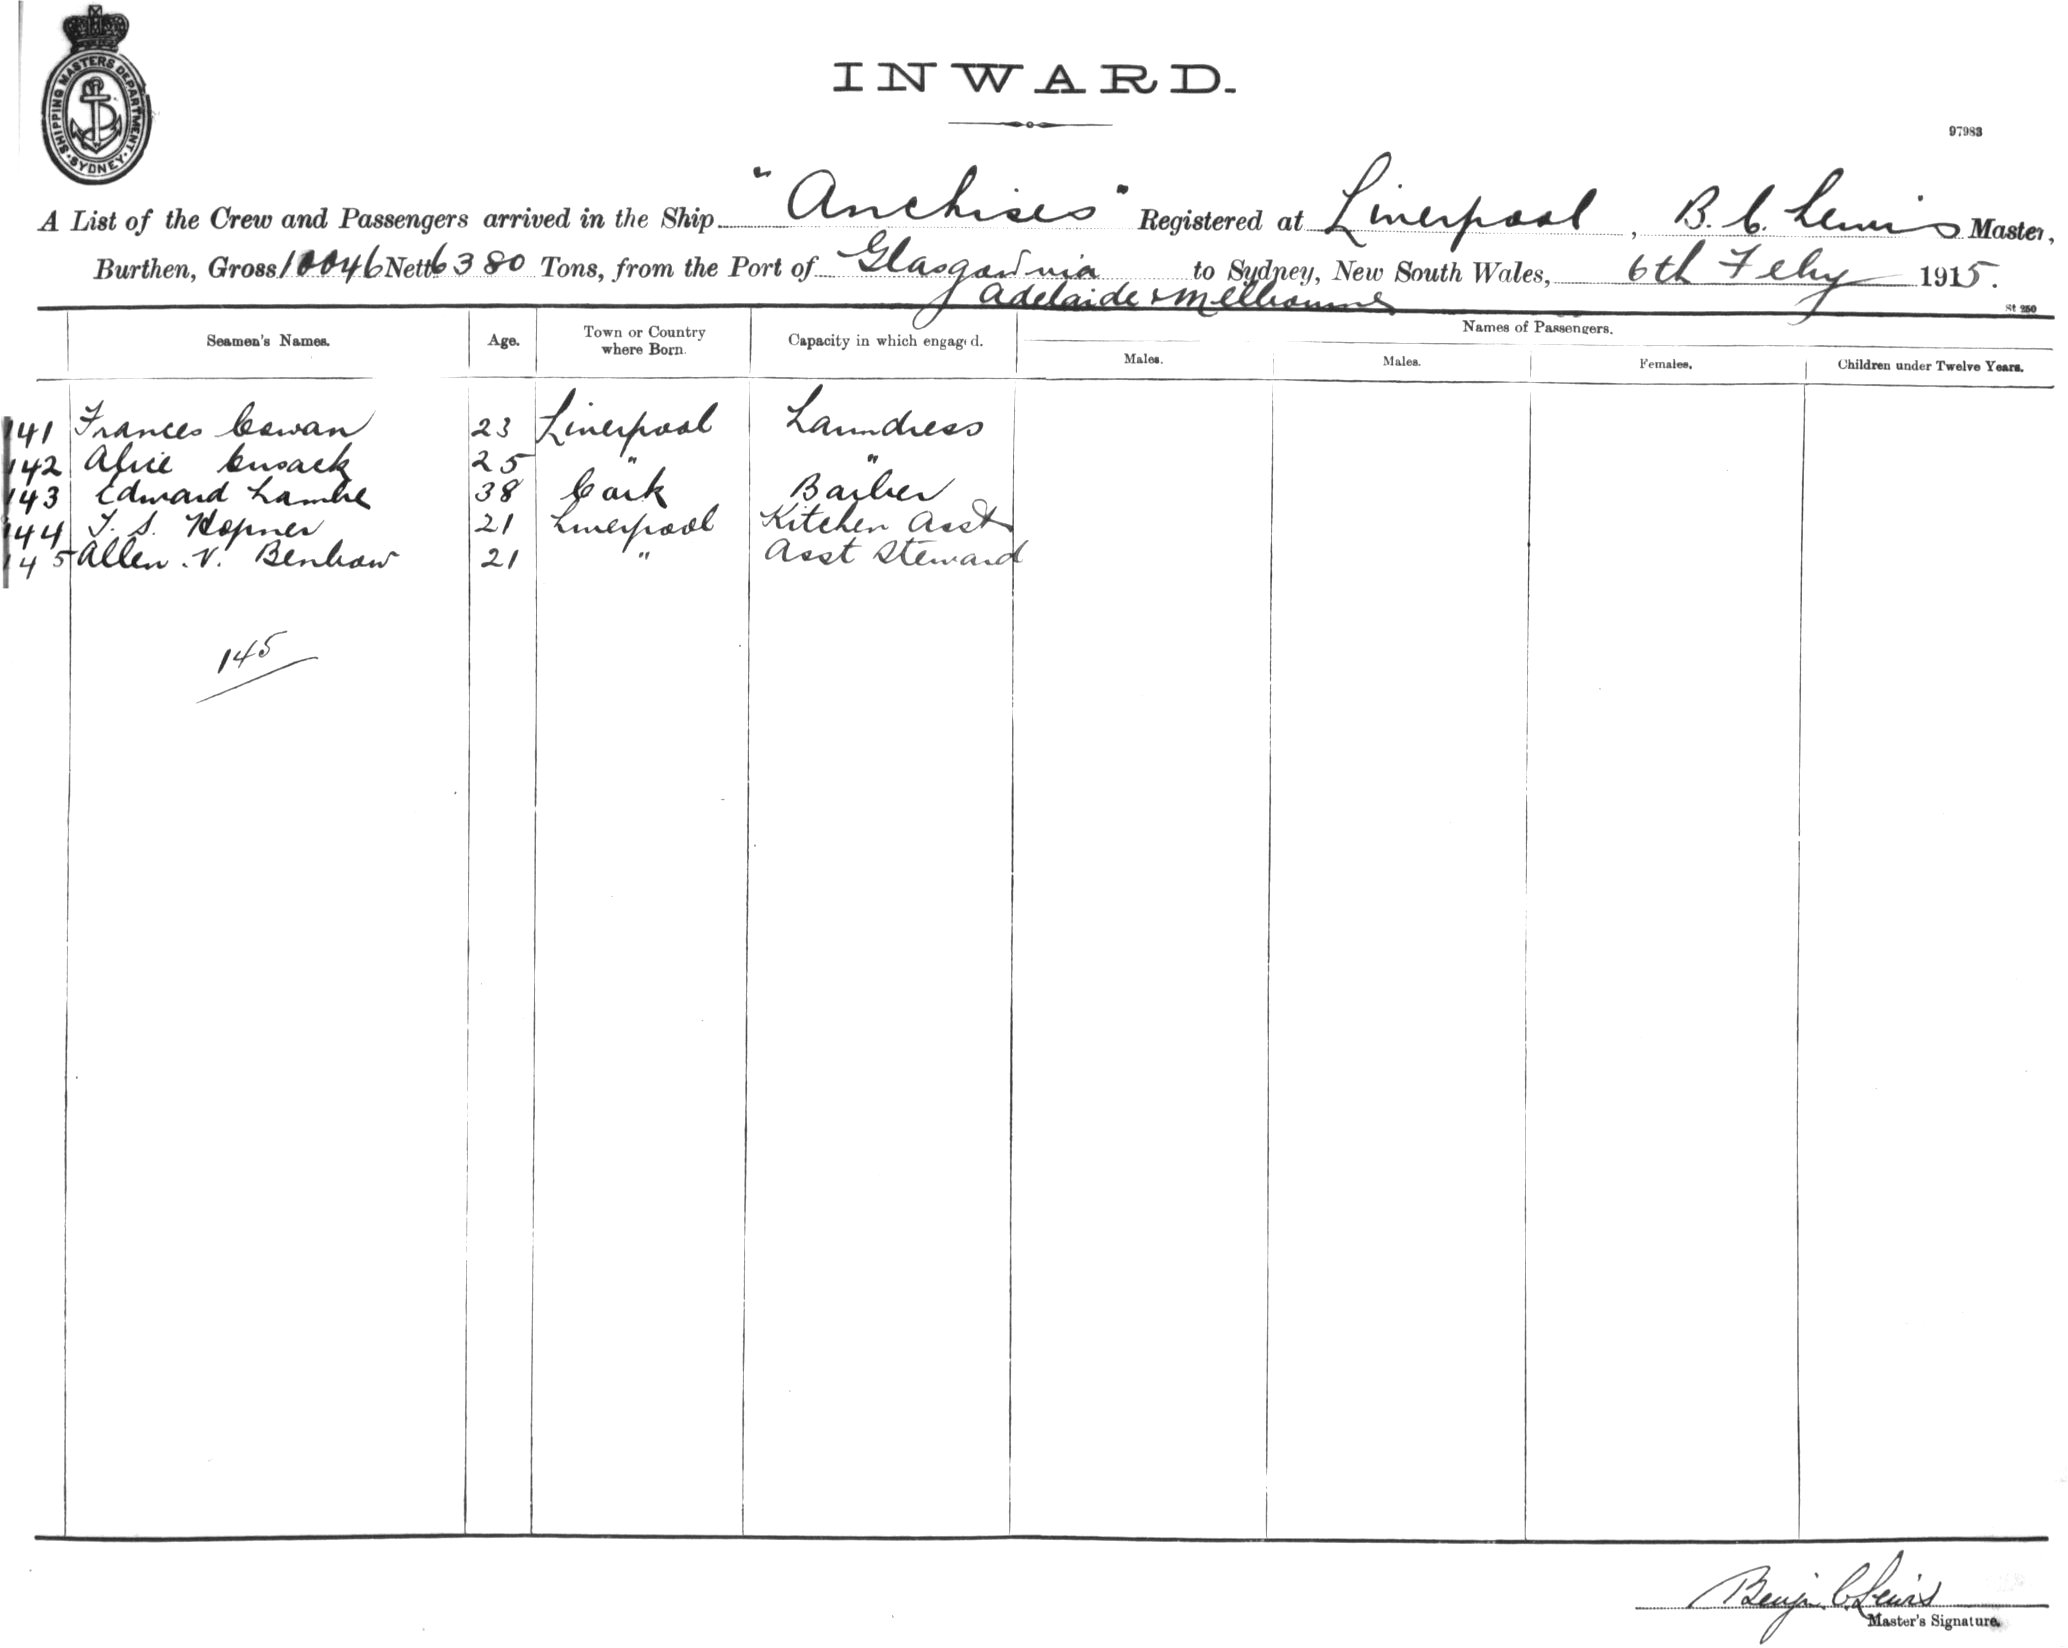 SHIPPING MASTERS DEPARTMENT SYDNEY
INWARD.
97983
A List of the Crew and Passengers arrived in the Ship "Anchises" Registered at Liverpool, B. C. Lewis Master,
Burthen, Gross 10046 Nett 6380 Tons, from the Port of Glasgow via to Sydney, New South Wales, 6th Feby 1915.
Adelaide & Melbourne
St 250
Seamen's Names. Age. Town or Country where Born. Capacity in which engaged. Names of Passengers.
Males. Males. Females. Children under Twelve Years.
141 Frances Cowan 23 Liverpool Laundress
142 Alice Cusack 25 " "
143 Edward Lambe 38 Cork Barber
144 T. S. Hopner 21 Liverpool Kitchen Asst
145 Allen V. Benbow 21 " Asst Steward
145
Benjn. C. Lewis
Master's Signature.